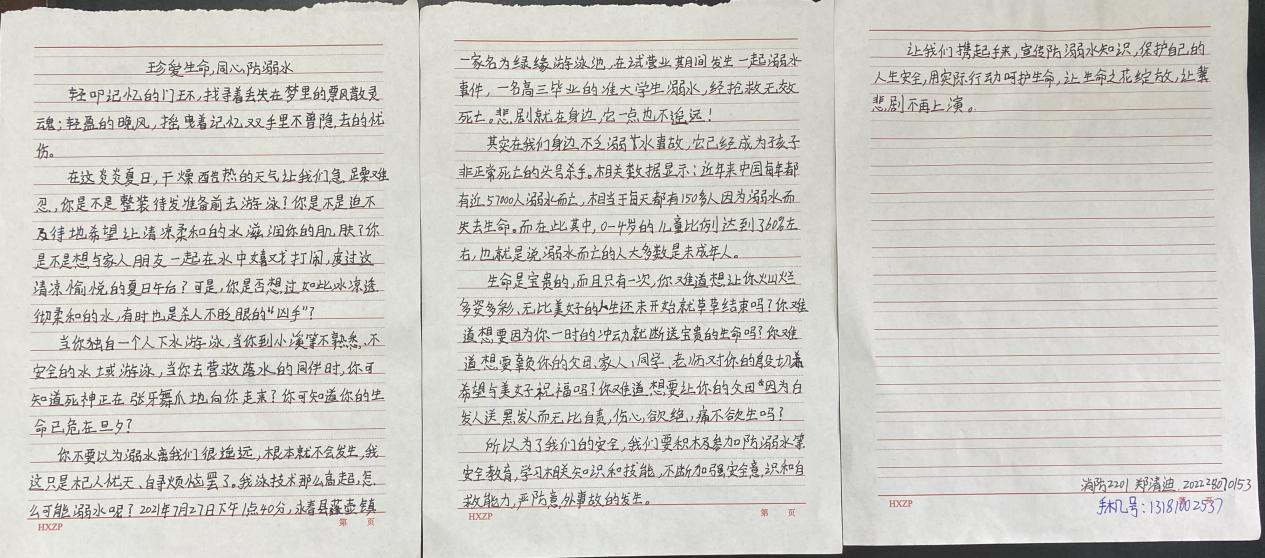 珍爱生命,同心防溺水
轻叩记忆的门环,找寻着去失在梦里的飘散灵
魂;轻盈的晚风,摇曳着记忆双手里不曾隐去的忧
伤。
在这炎炎夏日,干燥酷热的天气让我们急躁难
忍,你是不是整装待发准备前去游泳?你是不是迫不
及待地希望让清凉柔和的水滋润你的肌肤?你
是不是想与家人朋友一起在水中嬉戏打闹,度过这
清凉愉悦的夏日午后?可是,你是否想过如此冰凉透
彻柔和的水,有时也是杀人不眨眼的“凶手”?
当你独自一个人下水游泳,当你到小溪等不熟悉、不
安全的水域游泳,当你去营救落水的同伴时,你可
知道死神正在张牙舞爪地向你走来?你可知道你的生
命已危在旦夕?
你不要以为溺水离我们很遥远,根本就不会发生,我
这只是杞人忧天、自寻烦恼罢了。我泳技术那么高超,怎
么可能溺水呢?2021年7月27日下午1点40分,永春县蓬壶镇
HXZP
第 页
一家名为绿缘游泳池,在试营业期间发生一起溺水
事件,一名高三毕业的准大学生溺水,经抢救无效
死亡。悲剧就在身边,它一点也不遥远!
其实在我们身边不乏溺水事故,它已经成为孩子
非正常死亡的头号杀手。相关数据显示:近年来中国每年都
有近57000人溺水而亡,相当于每天都有150多人因为溺水而
失去生命。而在此其中,0-4岁的儿童比例达到了60%左
右,也就是说,溺水而亡的人大多数是未成年人。
生命是宝贵的,而且只有一次,你难道想让你灿烂
多姿多彩、无比美好的人生还未开始就草草结束吗?你难
道想要因为你一时的冲动就断送宝贵的生命吗?你难
道想要辜负你的父母、家人、同学、老师对你的殷切着
希望与美好祝福吗?你难道想要让你的父母因为白
发人送黑发人而无比自责,伤心欲绝,痛不欲生吗?
所以为了我们的安全,我们要积极参加防溺水等
安全教育,学习相关知识和技能,不断加强安全意识和自
救能力,严防意外事故的发生。
HXZP
第 页
让我们携起手来,宣传防溺水知识,保护自己的
人生安全,用实际行动呵护生命,让生命之花绽放,让
悲剧不再上演。
消防2201 郑清迪 202228070153
手机号:13181002537
HXZP